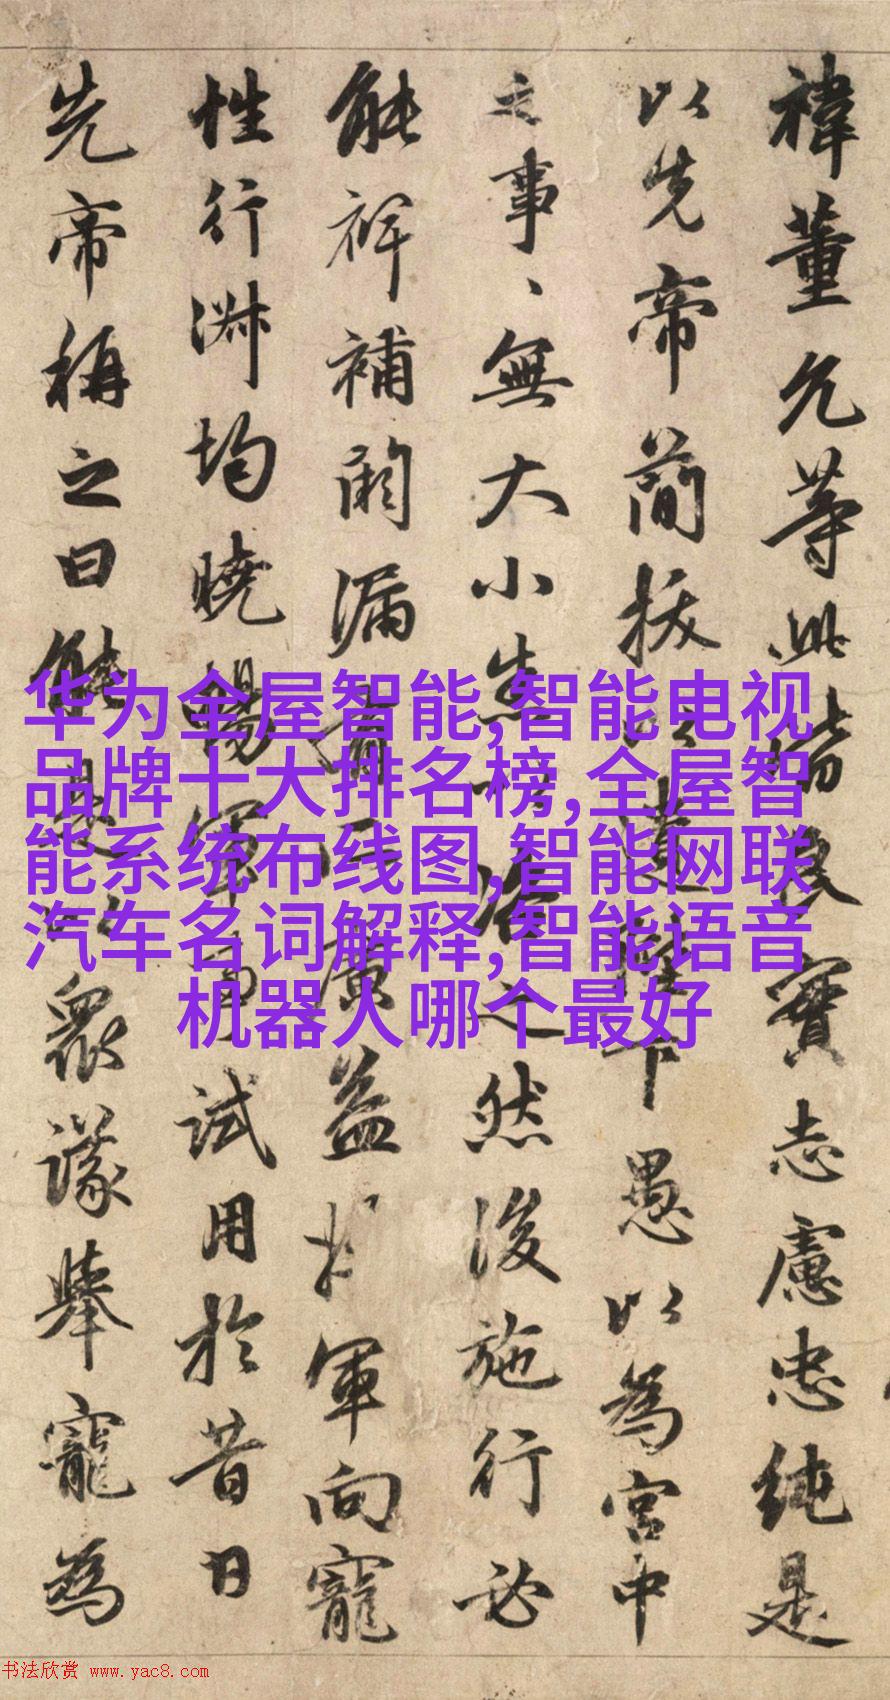 禕董允等此皆良實志慮忠純是
以先帝簡拔以遺陛下愚以為宮中
之事、無大小悉以咨之然後施行必
能裨補闕漏有所廣益將軍向寵
性行淑均曉暢軍事試用於昔日
先帝稱之曰能是以衆議舉寵為
华为全屋智能,智能电视
品牌十大排名榜,全屋智
能系统布线图,智能网联
汽车名词解释,智能语音
机器人哪个最好
书法欣赏 www.yac8.com